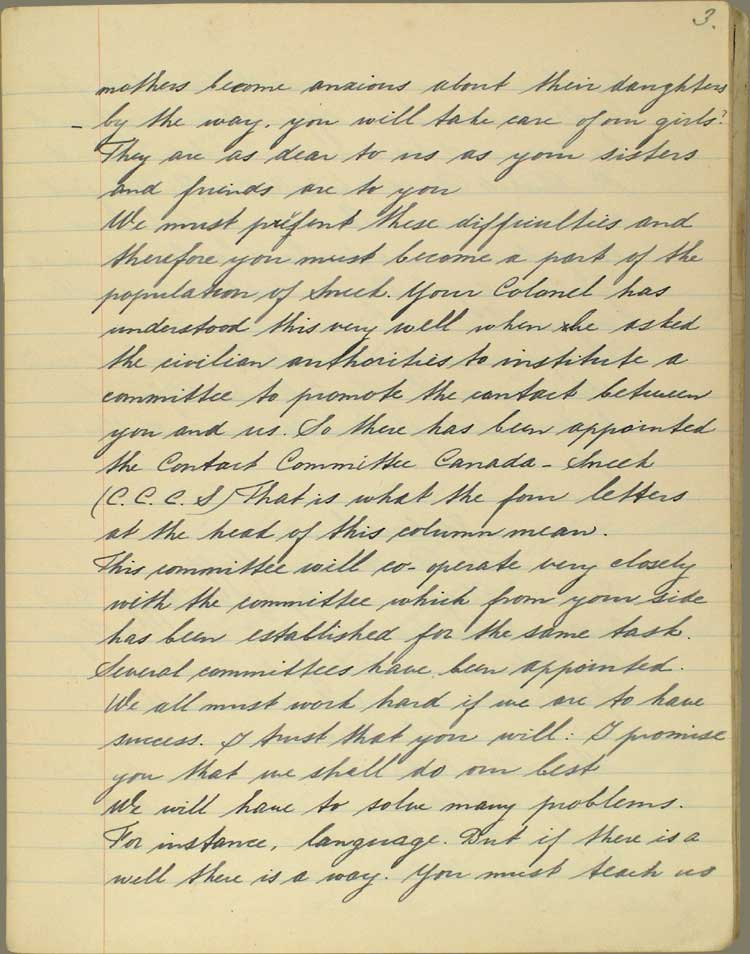 3.
mothers become anxious about their daughters
- by the way, you will take care of our girls?
They are as dear to us as your sisters
and friends are to you
We must these difficulties and
therefore you must become a part of the
population of Sneek. Your Colonel has
understood this very well when he asked
the civilian authorities to institute a
committee to promote the contact between
you and us. So there has been appointed
the Contact Committee Canada - Sneek
(C. C. C. S) That is what the four letters
at the head of this column mean.
This committee will co-operate very closely
with the committee which from your side
has been established for the same task.
Several committees have been appointed.
We all must work hard if we are to have
success. I trust that you will: I promise
you that we shall do our best
We will have to solve many problems.
For instance, language. But if there is a
well there is a way. You must teach us